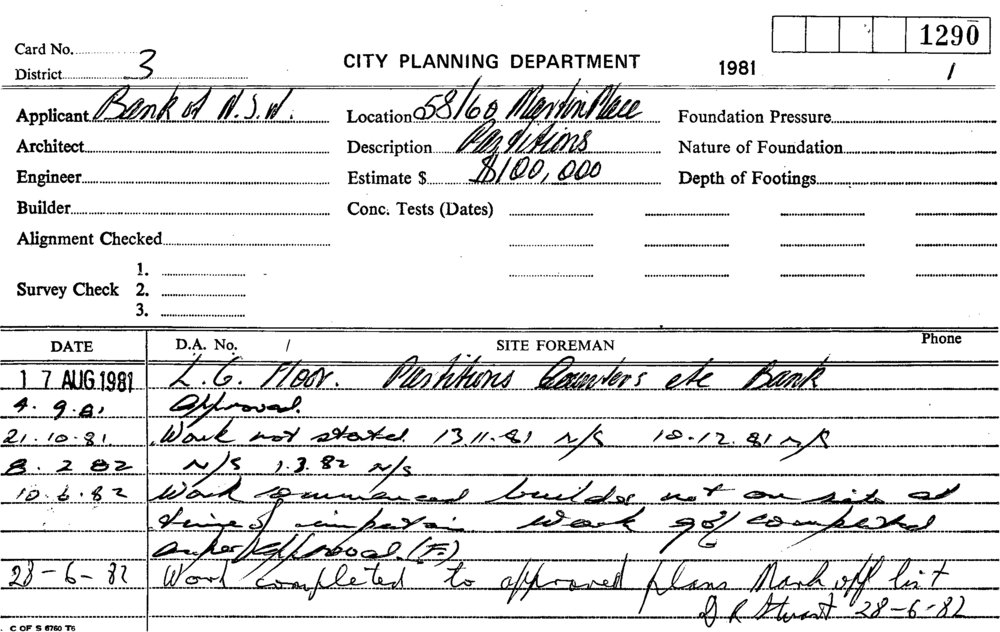 1290
Card No.
District 3
CITY PLANNING DEPARTMENT
1981 /
Applicant Bank of N.S.W.
Location 58/60 Martin Place
Foundation Pressure
Architect
Description Partitions
Nature of Foundation
Engineer
Estimate $ $100,000
Depth of Footings
Builder
Conc. Tests (Dates)
Alignment Checked
1.
Survey Check 2.
3.
DATE D.A. No. / SITE FOREMAN Phone
17 AUG 1981 L.G. Floor. Partitions Counters etc Bank
4.9.81 Approval.
21.10.81 Work not stated 13.11.81 N/S 10.12.81 N/S
8.2 82 N/S 1.3.82 N/S
10.6.82 Work commenced builder not on site at
time of inspection Work 90% completed
as per approval. (F)
28-6-82 Work completed to approved plans Mark off list
J R Stuart 28-6-82
C OF S 6760 T6